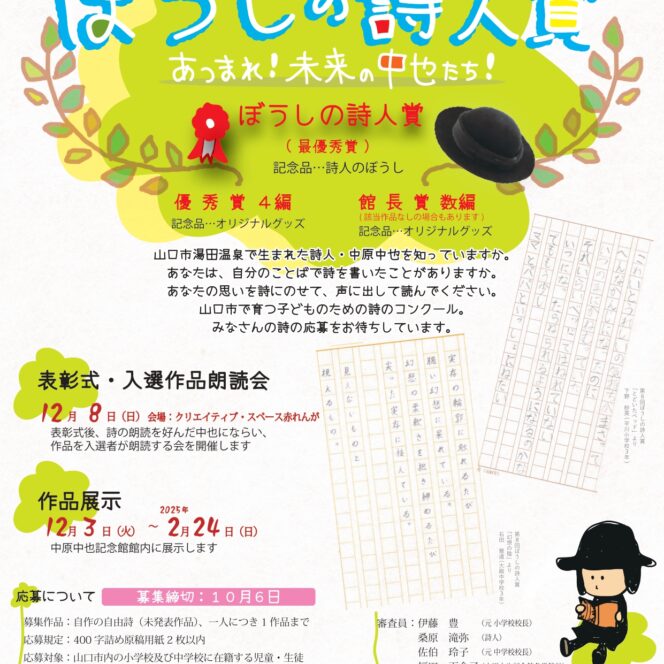 ぼうしの詩人賞
あつまれ！未来の中也たち！
ぼうしの詩人賞
（最優秀賞）
記念品…詩人のぼうし
優秀賞 4編
記念品…オリジナルグッズ
館長賞 数編
(該当作品なしの場合もあります)
記念品…オリジナルグッズ
山口市湯田温泉で生まれた詩人・中原中也を知っていますか。
あなたは、自分のことばで詩を書いたことがありますか。
あなたの思いを詩にのせて、声に出して読んでください。
山口市で育つ子どものための詩のコンクール。
みなさんの詩の応募をお待ちしています。
表彰式・入選作品朗読会
12月 8日（日）会場：クリエイティブ・スペース赤れんが
表彰式後、詩の朗読を好んだ中也にならい、
作品を入選者が朗読する会を開催します
作品展示
2025年
12月3日（火）～2月24日（日）
中原中也記念館館内に展示します
実存の輪郭に触れるたび
脆い幻想に呆れている。
幻想の柔軟さを抱き締めるたび
尖った実存に怯えている。
見えないものと
視えるもの。
第8回ぼうしの詩人賞
応募について
募集締切：10月6日
募集作品：自作の自由詩（未発表作品）、一人につき1作品まで
応募規定：400字詰め原稿用紙2枚以内
応募対象：山口市内の小学校及び中学校に在籍する児童・生徒
審査員：伊藤 豊（元小学校校長）
桑原 滝弥（詩人）
佐伯 玲子（元中学校校長）